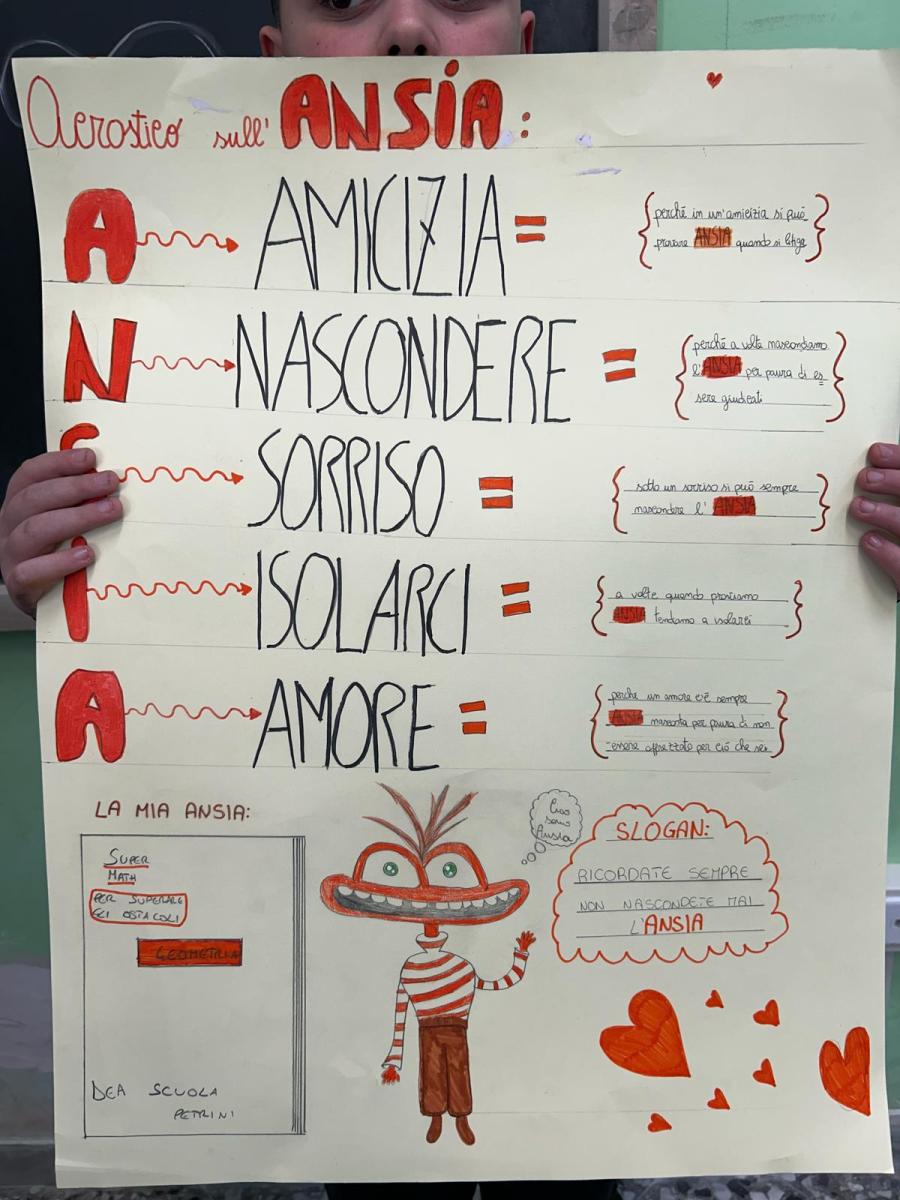 Acrostico sull' ANSIA:
A AMICIZIA =
perché in un'amicizia si può
provare ANSIA quando si litiga
N NASCONDERE =
perché a volte nascondiamo
l'ANSIA per paura di es
sere giudicati
S SORRISO =
sotto un sorriso si può sempre
nascondere l' ANSIA
I ISOLARCI =
a volte quando proviamo
ANSIA tendiamo a isolarci
A AMORE =
perche un amore c'é sempre
ANSIA nascosta per paura di non
essere apprezzato per ció che sei
LA MIA ANSIA:
SUPER
MATH
PER SUPERARE
GLI OSTACOLI
GEOMETRIA
DEA SCUOLA
PETRINI
Ciao
sono
Ansia
SLOGAN:
RICORDATE SEMPRE
NON NASCONDETE MAI
L'ANSIA